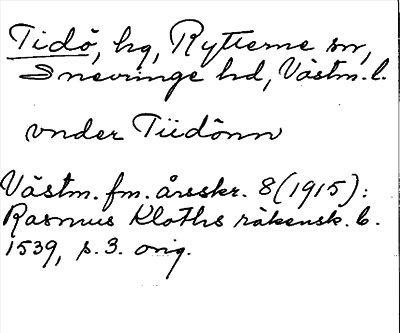 Tidö, hg, Rytterne sn,
Snevringe hd, Västm. l.
vnder Tiidönn
Västm. fm. årsskr. 8 (1915):
Rasmus Kloths räkensk. b.
1539, s. 3. orig.